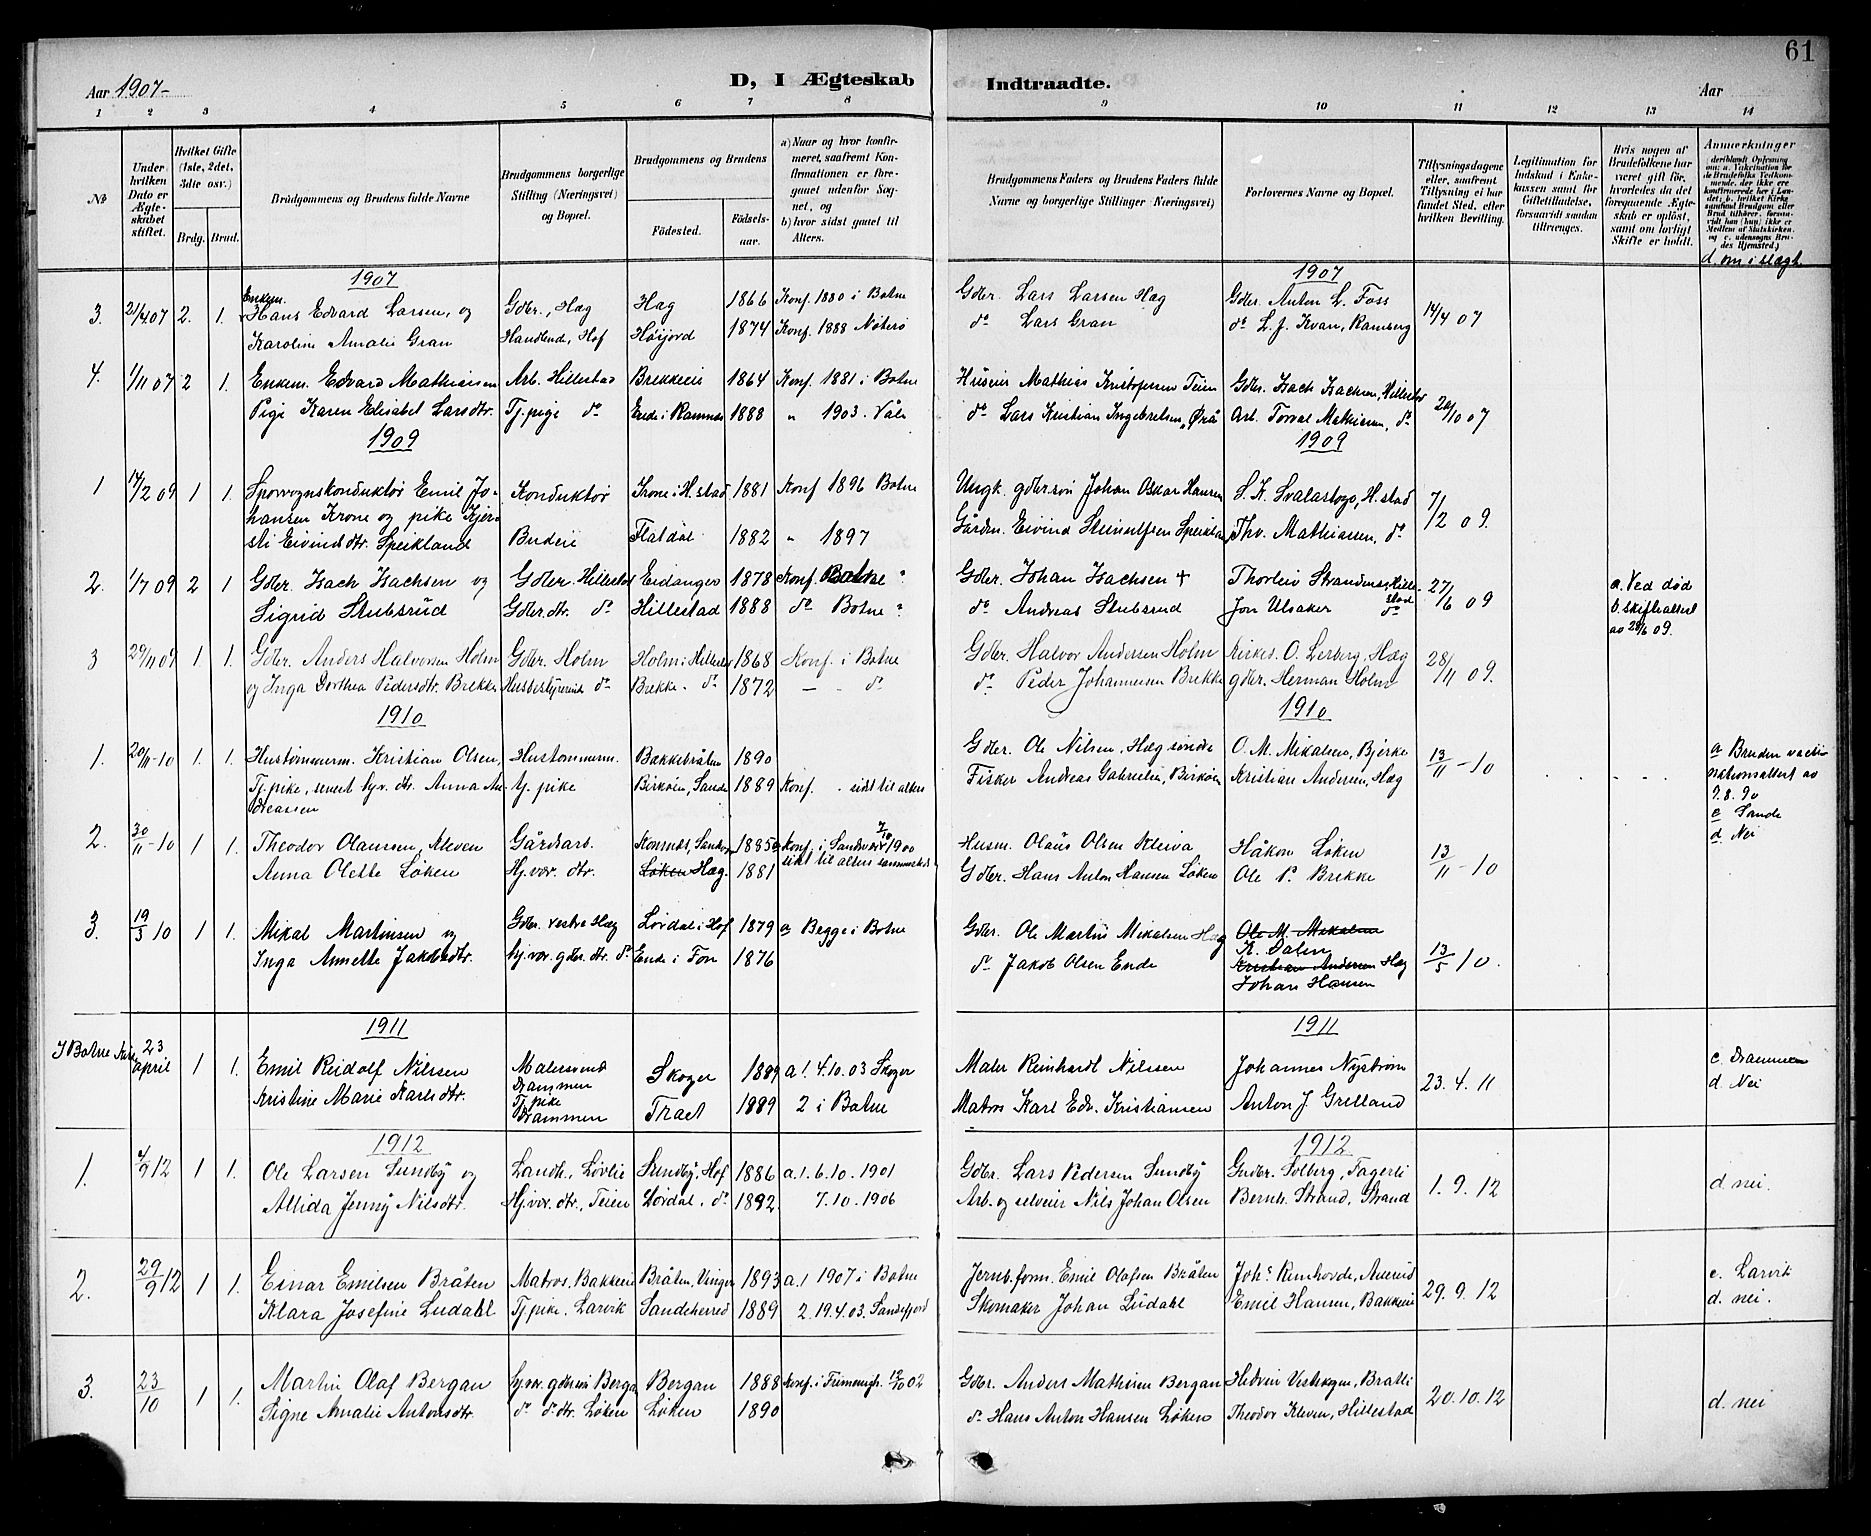 61
Aar 1907-
D, I Ægteskab Indtraadte.
Aar
1 2 3 4 5 6 7 8 9 10 11 12 13 14
№
Under hvilken Dato er Ægteskabet stiftet.
Hvilket Gifte (1ste, 2det, 3die osv.)
Brdg. Brud.
Brudgommens og Brudens fulde Navne
Brudgommens borgerlige Stilling (Næringsvei) og Bopæl.
Brudgommens og Brudens
Fødested.
Fødselsaar.
a) Naar og hvor konfirmeret, saafremt Konfirmationen er foregaaet udenfor Sognet, og
b) hvor sidst gaaet til Alters.
Brudgommens Faders og Brudens Faders fulde Navne og borgerlige Stillinger (Næringsvei)
Forlovernes Navne og Bopæl.
Tillysningsdagene eller, saafremt Tillysning ei har fundet Sted, efter hvilken Bevilling.
Legitimation for Indskud i Enkekassen samt for Giftetilladelse, forsaavidt saadan tiltrænges.
Hvis nogen af Brudefolkene har været gift før, hvorledes da det foregaaende Ægteskab er opløst, samt om lovligt Skifte er holdt.
Anmerkninger
d. om i slægt
1907 1907
3. 21/4 07 2. 1. Enkem. Hans Edvard Larsen, og Gdbr., Hæg Hæg 1866 Konf. 1880 i Botne Gdbr. Lars Larsen Hæg Gdbr. Anton L. Foss 14/4 07
Karoline Amalie Gran Handlend, Hof Høijord 1874 Konf. 1888 Nøterø do Lars Gran do L. J. Kvan, Ramberg
4. 1/11 07 2 1. Enkem. Edvard Mathisen Arb. Hillestad Brekkeeie 1864 Konf. 1881 i Botne Huseier Mathias Kristofersen Teien Gdbr. Isach Isachsen, Hillestad 20/10 07
Pige Karen Elisabet Larsdtr. Tj.pige do Ende i Ramnes 1888 " 1903. Våle do Lars Kristian Ingebretsen, Arb. Torval Mathisen, do
1909 1909
1 14/2 09 1 1. Sporvognskonduktør Emil Jo- Konduktør Krone i H.stad 1881 Konf 1896 Botne Ungk. gdbr.søn Johan Oskar Hansen S. K. Svalastoga, H.stad 7/2 09.
hansen Krone og pike Kjer-
sti Eivindsdtr. Speikland Budeie Flatdal 1882 " 1897 Gårdm. Eivind Steinulfsen Speikland Thv. Mathiassen, do
2. 1/7 09 2 1 Gdbr. Isach Isachsen og Gdbr. Hillestad Eidanger 1878 Konf. Botne " Gdbr. Johan Isachsen + Thorleiv Strandenes, Hillestad 27/6 09 a. Ved død
Sigrid Stubsrud Gdbr.dtr. do Hillestad 1888 do Botne " do Andreas Stubsrud Jon Ulsaker do b. skifteattest
av 28/6 09.
3 29/11 09 1. 1. Gdbr. Anders Halvorsen Holm Gdbr. Holm Holm i Hillestad 1868 Konf. i Botne Gdbr. Halvor Andersen Holm Kirkes. O. Lerberg, Hæg 28/11 09.
og Inga Dorthea Pedersdtr. Brekke Husbestyrerinde do Brekke. do 1872 — - do do Peder Johannesen Brekke gdbr. Herman Holm
1910 1910
1. 20/11-10 1. 1. Hustømmerm. Kristian Olsen, Hustømmerm. Bakkebråten 1890 Gdbr. Ole Nilsen, Hæg søndre O. M. Mikalsen, Bjerke 13/11-10 a Bruden vacci-
Tj.pike, senest hjv. dtr. Anna An- tj. pike Birkøien, Sande 1889 Konf. - sidst til alters Fisker Andreas Gabrielsen, Birkøien Kristian Andersen, Hæg nationsattest av
dreassen 9.8.90
c Sande
d Nei
2. 30/11-10 1 1. Theodor Olaussen, Kleven Gårdsarb. Komnæs, Sandsvær 1885 Konf. i Sandsvær 7/10 1900 Husm. Olaus Olsen Kleiva Håkon Løken 13/11-10
Anna Olette Løken Hj.vær. dtr. Løken Hæg. 1881 sidst til alters sammesteds Gdbr. Hans Anton Hansen Løken Ole P. Brekke
3. 19/5 10 1 1. Mikal Martinsen og Gdbr. vestre Hæg Lørdal i Hof 1879 a Begge i Botne Gdbr. Ole Martin Mikalsen Hæg Ole M. Mikalsen 13/5 10.
Inga Annette Jakobsdtr. hj.vær. gdbr. dtr. do Ende i Fon 1876 do Jakob Olsen Ende K. Dalen
Kristian Andersen Hæg
Johan Hansen
1911 1911
I Botne Kirke 23 april 1 1. Emil Rudolf Nilssen Malersvend Drammen Skoger 1889 a 1. 4.10.03 Skoger Maler Reinhardt Nilssen Johannes Nystrøm 23.4.11 c. Drammen
Kristine Marie Karlsdtr. Tj.pike Drammen Traet 1889 2 i Botne Matros Karl Edv. Kristiansen Anton J. Grelland d. Nei
1912 1912
1. 4/9 12 1 1. Ole Larsen Sundby og Landh., Løvlie Sundby, Hof 1886 a. 1. 6.10.1901 Gdbr. Lars Pedersen Sundby Gudbr. Solberg, Fagerli 1.9.12 d. nei.
Alfida Jenny Nilsdtr. Hj.vær. dtr., Teien Lørdal. do 1892. 7.10.1906 Arb. og selveier Nils Johan Olsen Bernh. Strand, Strand
2. 29/9 12 1 1. Einar Emilsen Bråten Matros. Bakkeeie Bråten, Vinger 1893 a. 1 1907 i Botne Jernb.form. Emil Olafsen Bråten Johs Rimhovde, 29.9.12 c. Larvik
Klara Josefine Ludahl Tj.pike. Larvik Sandeherred 1889 2. 19.4.03. Sandefjord Skomaker Johan Ludahl Emil Hansen, Bakkeeie d. nei.
3. 23/10 1 1. Martin Olaf Bergan hj.vær. gdbr.søn Bergan Bergan 1888 Konf. i Trimenigh. 12/10 02 Gdbr. Anders Mathisen Bergan Hedvin Vestskogen, Bratli 20.10.12 d. nei
Signe Amalie Antonsdtr. do d. dtr. Løken Løken 1890 do Hans Anton Hansen Løken Theodor Kleven, Hillestad